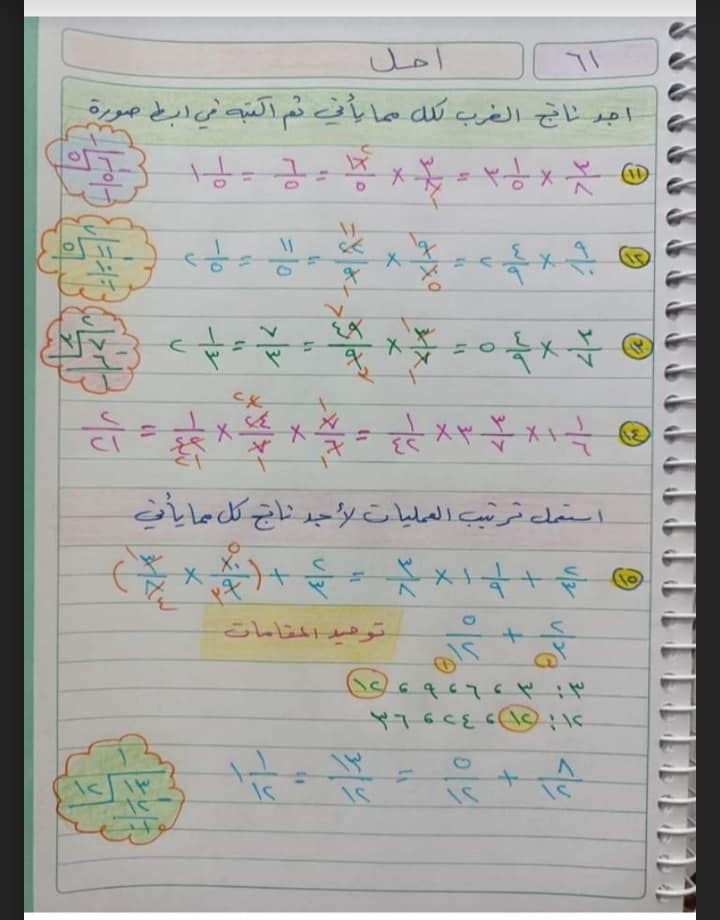 ٦١ احل
اجد ناتج الضرب لكل مما يأتي ثم اكتبه في ابسط صورة
١١ ٣/٨ × ٣ ١/٥ = ٣/٨ × ١٦/٥ = ٦/٥ = ١ ١/٥
١٢ ٩/١٠ × ٢ ٤/٩ = ٩/١٠ × ٢٢/٩ = ١١/٥ = ٢ ١/٥
١٣ ٣/٧ × ٥ ٤/٩ = ٣/٧ × ٤٩/٩ = ٧/٣ = ٢ ١/٣
١٤ ١ ١/٦ × ٣ ٣/٧ × ١/٤٢ = ٧/٦ × ٢٤/٧ × ١/٤٢ = ٢/٢١
استعمل ترتيب العمليات لأجد ناتج كل مما يأتي
١٥ ٢/٣ + ١ ١/٩ × ٣/٨ = ٢/٣ + (١٠/٩ × ٣/٨)
٢/٣ + ٥/١٢ توحيد المقامات
٣: ٣، ٦، ٩، ١٢
١٢: ١٢، ٢٤، ٣٦
٨/١٢ + ٥/١٢ = ١٣/١٢ = ١ ١/١٢